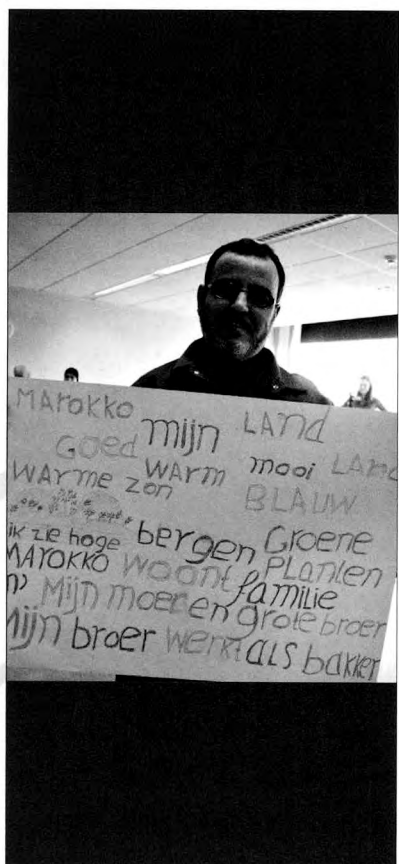 MARokko mijn LANd
GOEd WARm mooi LANd
WARme zon BLAUW
ik zie hoge bergen Groene
MAROKKO woont PLANten
familie
Mijn moeder en grote broer
Mijn broer werkt ALS bakker